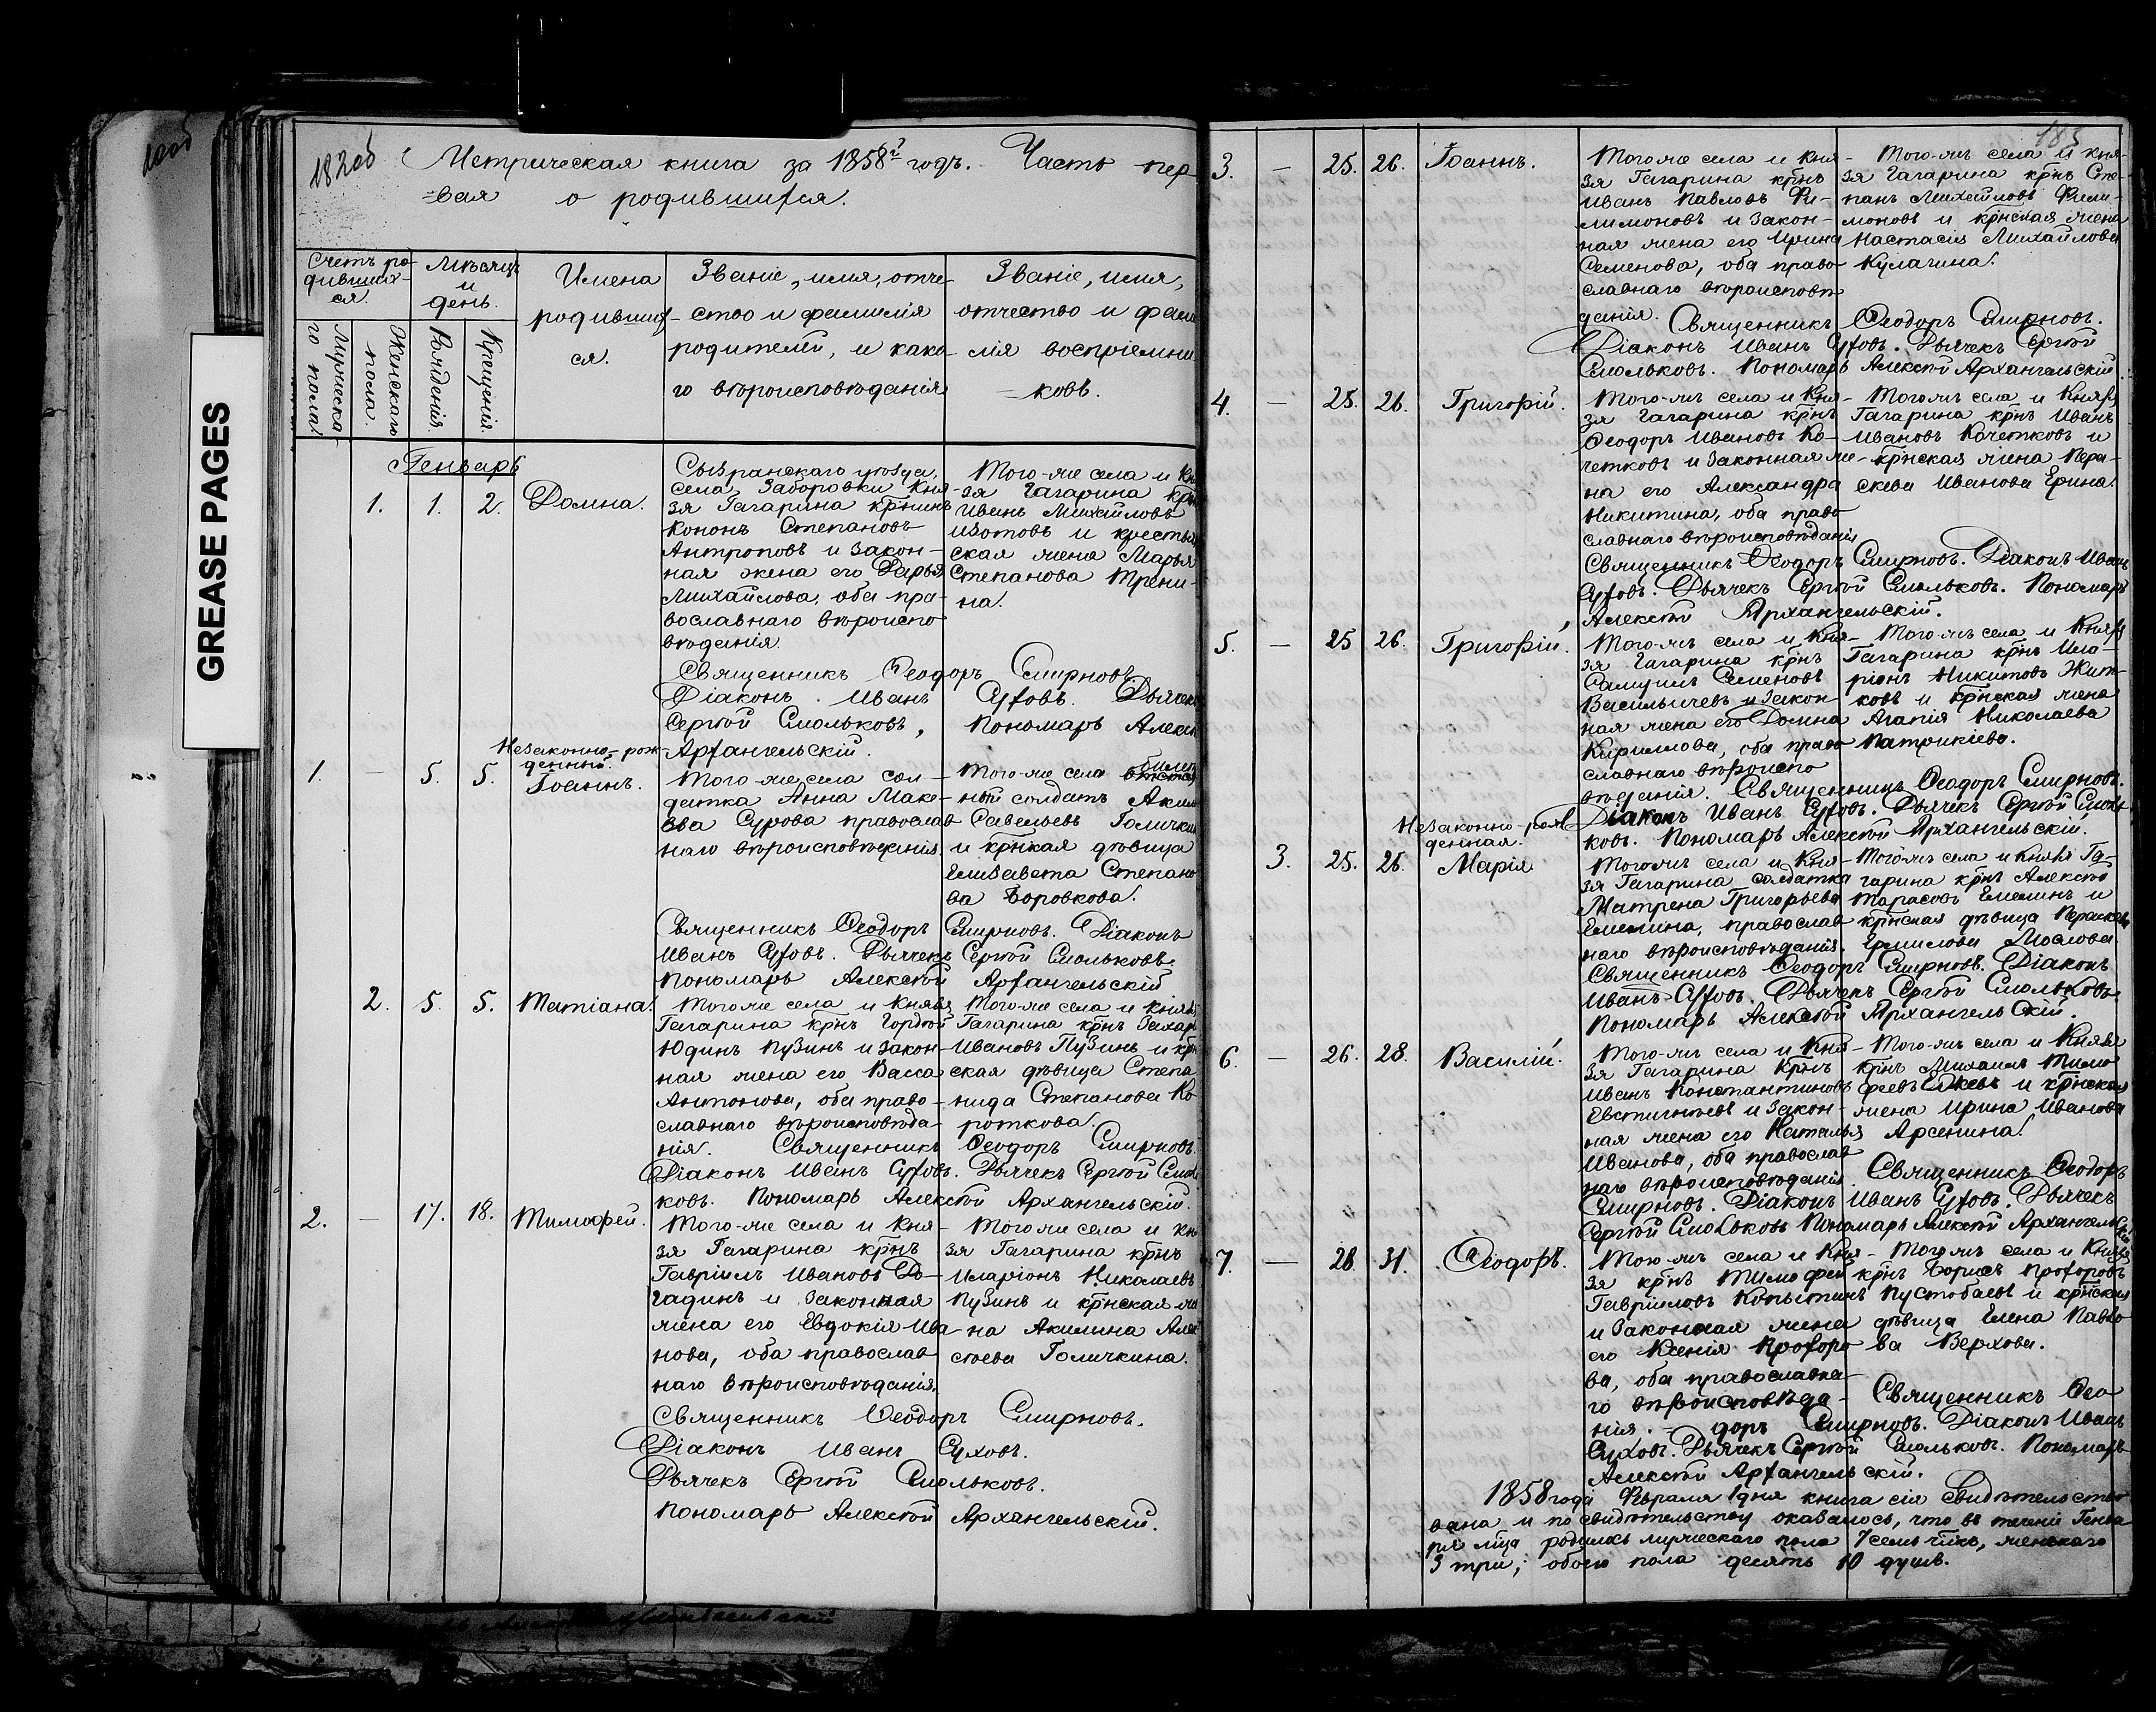 182об
Метрическая книга за 1858й годъ. Часть пер
=вая о родившихся.
Счетъ ро-
дивших-
ся.
Мужеска-
го пола.
Женскаго
пола.
Мѣсяцъ
и
день.
Рожденія.
Крещенія.
Имена
родивших-
ся.
Званіе, имя, отче-
ство и фамилія
родителей, и како-
го вѣроисповѣданія
Званіе, имя,
отчество и фами
лія воспріемни
=ковъ.
Генварь
1. 1. 2. Домна.
Сызранскаго уѣзда,
села Заборовки Кня-
зя Гагарина крнинъ
Кононъ Степановъ
Антроповъ и закон-
ная жена его Дарья
Михайлова, оба пра-
вославнаго вѣроиспо
вѣданія.
Того-же села и Кн
зя Гагарина крн
Иванъ Михайловъ
Изотовъ и крестья
ская жена Марья
Степанова Трени-
на.
Священникъ Ѳеодоръ Смирновъ
Діаконъ Иванъ Суховъ. Дьячекъ
Сергѣй Смольковъ, Пономарь Алекс
Архангельскій.
Незаконно-рож
денный.
1. — 5. 5. Іоаннъ.
Того-же села сол-
датка Анна Маке-
ева Сурова православ
наго вѣроисповѣданія.
Того-же села билет
ный солдатъ Аким
Савельевъ Голичкин
и крнская дѣвица
Елизавета Степано
ва Боровкова.
Священникъ Ѳеодоръ Смирновъ. Діаконъ
Иванъ Суховъ. Дьячекъ Сергѣй Смольковъ.
Пономарь Алексѣй Архангельскій
2. 5. 5. Татіана.
Того-же села и Князя
Гагарина крнъ Гордѣй
Юдинъ Пузинъ и закон-
ная жена его Васса
Антонова, оба право-
славнаго вѣроисповѣда-
нія.
Того-же села и Князя
Гагарина крнъ Захаръ
Ивановъ Пузинъ и крн
ская дѣвица Степа
нида Степанова Ко
роткова.
Священникъ Ѳеодоръ Смирновъ.
Діаконъ Иванъ Суховъ. Дьячекъ Сергѣй Смол
ковъ. Пономарь Алексѣй Архангельскій.
2. — 17. 18. Тимофей.
Того-же села и Кня-
зя Гагарина крнъ
Гавріилъ Ивановъ До-
гадинъ и законная
жена его Евдокія Ива
нова, оба православ
наго вѣроисповѣданія.
Того же села и Кн
зя Гагарина крнъ
Иларіонъ Николаевъ
Пузинъ и крнская же
на Акилина Алек
сѣева Голичкина.
Священникъ Ѳеодоръ Смирновъ.
Діаконъ Иванъ Суховъ.
Дьячекъ Сергѣй Смольковъ.
Пономарь Алексѣй Архангельскій.
183
3. — 25. 26. Іоаннъ.
Того же села и Кня-
зя Гагарина крнъ
Иванъ Павловъ Фи-
лимоновъ и закон-
ная жена его Ирина
Семенова, оба право
славнаго вѣроисповѣ
данія.
Того-жъ села и Кня-
зя Гагарина крнъ Сте-
панъ Михайловъ Фили-
моновъ и крнская жена
Настасія Михайлова
Кулагина.
Священникъ Ѳеодоръ Смирновъ.
Діаконъ Иванъ Суховъ. Дьячекъ Сергѣй
Смольковъ. Пономарь Алексѣй Архангельскій.
4. — 25. 26. Григорій.
Того-жъ села и Кня-
зя Гагарина крнъ
Ѳеодоръ Ивановъ Ко-
четковъ и законная же-
на его Александра
Никитина, оба право
славнаго вѣроисповѣданія
Того жъ села и Князя
Гагарина крнъ Иванъ
Ивановъ Кочетковъ и
крнская жена Пара-
скева Иванова Ерина.
Священникъ Ѳеодоръ Смирновъ. Діаконъ Иванъ
Суховъ. Дьячекъ Сергѣй Смольковъ. Пономарь
Алексѣй Архангельскій.
5. — 25 26. Григорій.
Того-жъ села и Кня-
зя Гагарина крнъ
Самуилъ Семеновъ
Васильичевъ и закон-
ная жена его Домна
Кирилова, оба право
славнаго вѣроиспо
вѣданія.
Того жъ села и Князя
Гагарина крнъ Ила-
ріонъ Никитовъ Жит-
ковъ и крнская жена
Агапія Николаева
Патрикіева.
Священникъ Ѳеодоръ Смирновъ.
Діаконъ Иванъ Суховъ. Дьячекъ Сергѣй Смоль
ковъ. Пономарь Алексѣй Архангельскій.
Незаконно-рож
денная.
3. 25. 26. Марія
Того жъ села и Кня-
зя Гагарина солдатка
Матрена Григорьева
Емелина, православ
наго вѣроисповѣданія.
Того-жъ села и Князя Га-
гарина крнъ Алексѣй
Тарасовъ Емелинъ и
крнская дѣвица Параскева
Ермилова Маслова.
Священникъ Ѳеодоръ Смирновъ. Діаконъ
Иванъ Суховъ. Дьячекъ Сергѣй Смольковъ.
Пономарь Алексѣй Архангельскій.
6. — 26. 28. Василій.
Того-жъ села и Кня-
зя Гагарина Крнъ
Иванъ Константиновъ
Евстигнѣевъ и закон-
ная жена его Наталья
Иванова, оба православ
наго вѣроисповѣданія.
Того-жъ села и Князя
крнъ Михаилъ Тимо
феевъ и крнская
жена Ирина Иванова
Арсенина.
Священникъ Ѳеодоръ
Смирновъ. Діаконъ Иванъ Суховъ. Дьячекъ
Сергѣй Смольковъ Пономарь Алексѣй Архангельскій
7. — 28. 31. Ѳеодоръ.
Того-жъ села и Кня-
зя крнъ Тимофей
Гавриловъ Копытинъ
и законная жена
его Ксенія Прохоро
ва, оба православна-
го вѣроисповѣда-
нія.
Того жъ села и Князя
крнъ Борисъ Прохоровъ
Пустобаевъ и крнская
дѣвица Елена Павло
ва Верхова.
Священникъ Ѳео
доръ Смирновъ. Діаконъ Иванъ
Суховъ. Дьячекъ Сергѣй Смольковъ. Пономарь
Алексѣй Архангельскій.
1858 года Февраля 1 дня книга сія свидѣтельство
вана и по свидѣтельству оказалось, что въ теченіи Генва
ря мца родилось мужескаго пола 7 семь, женскаго
3 три; обоего пола десять 10 душъ.
GREASE PAGES